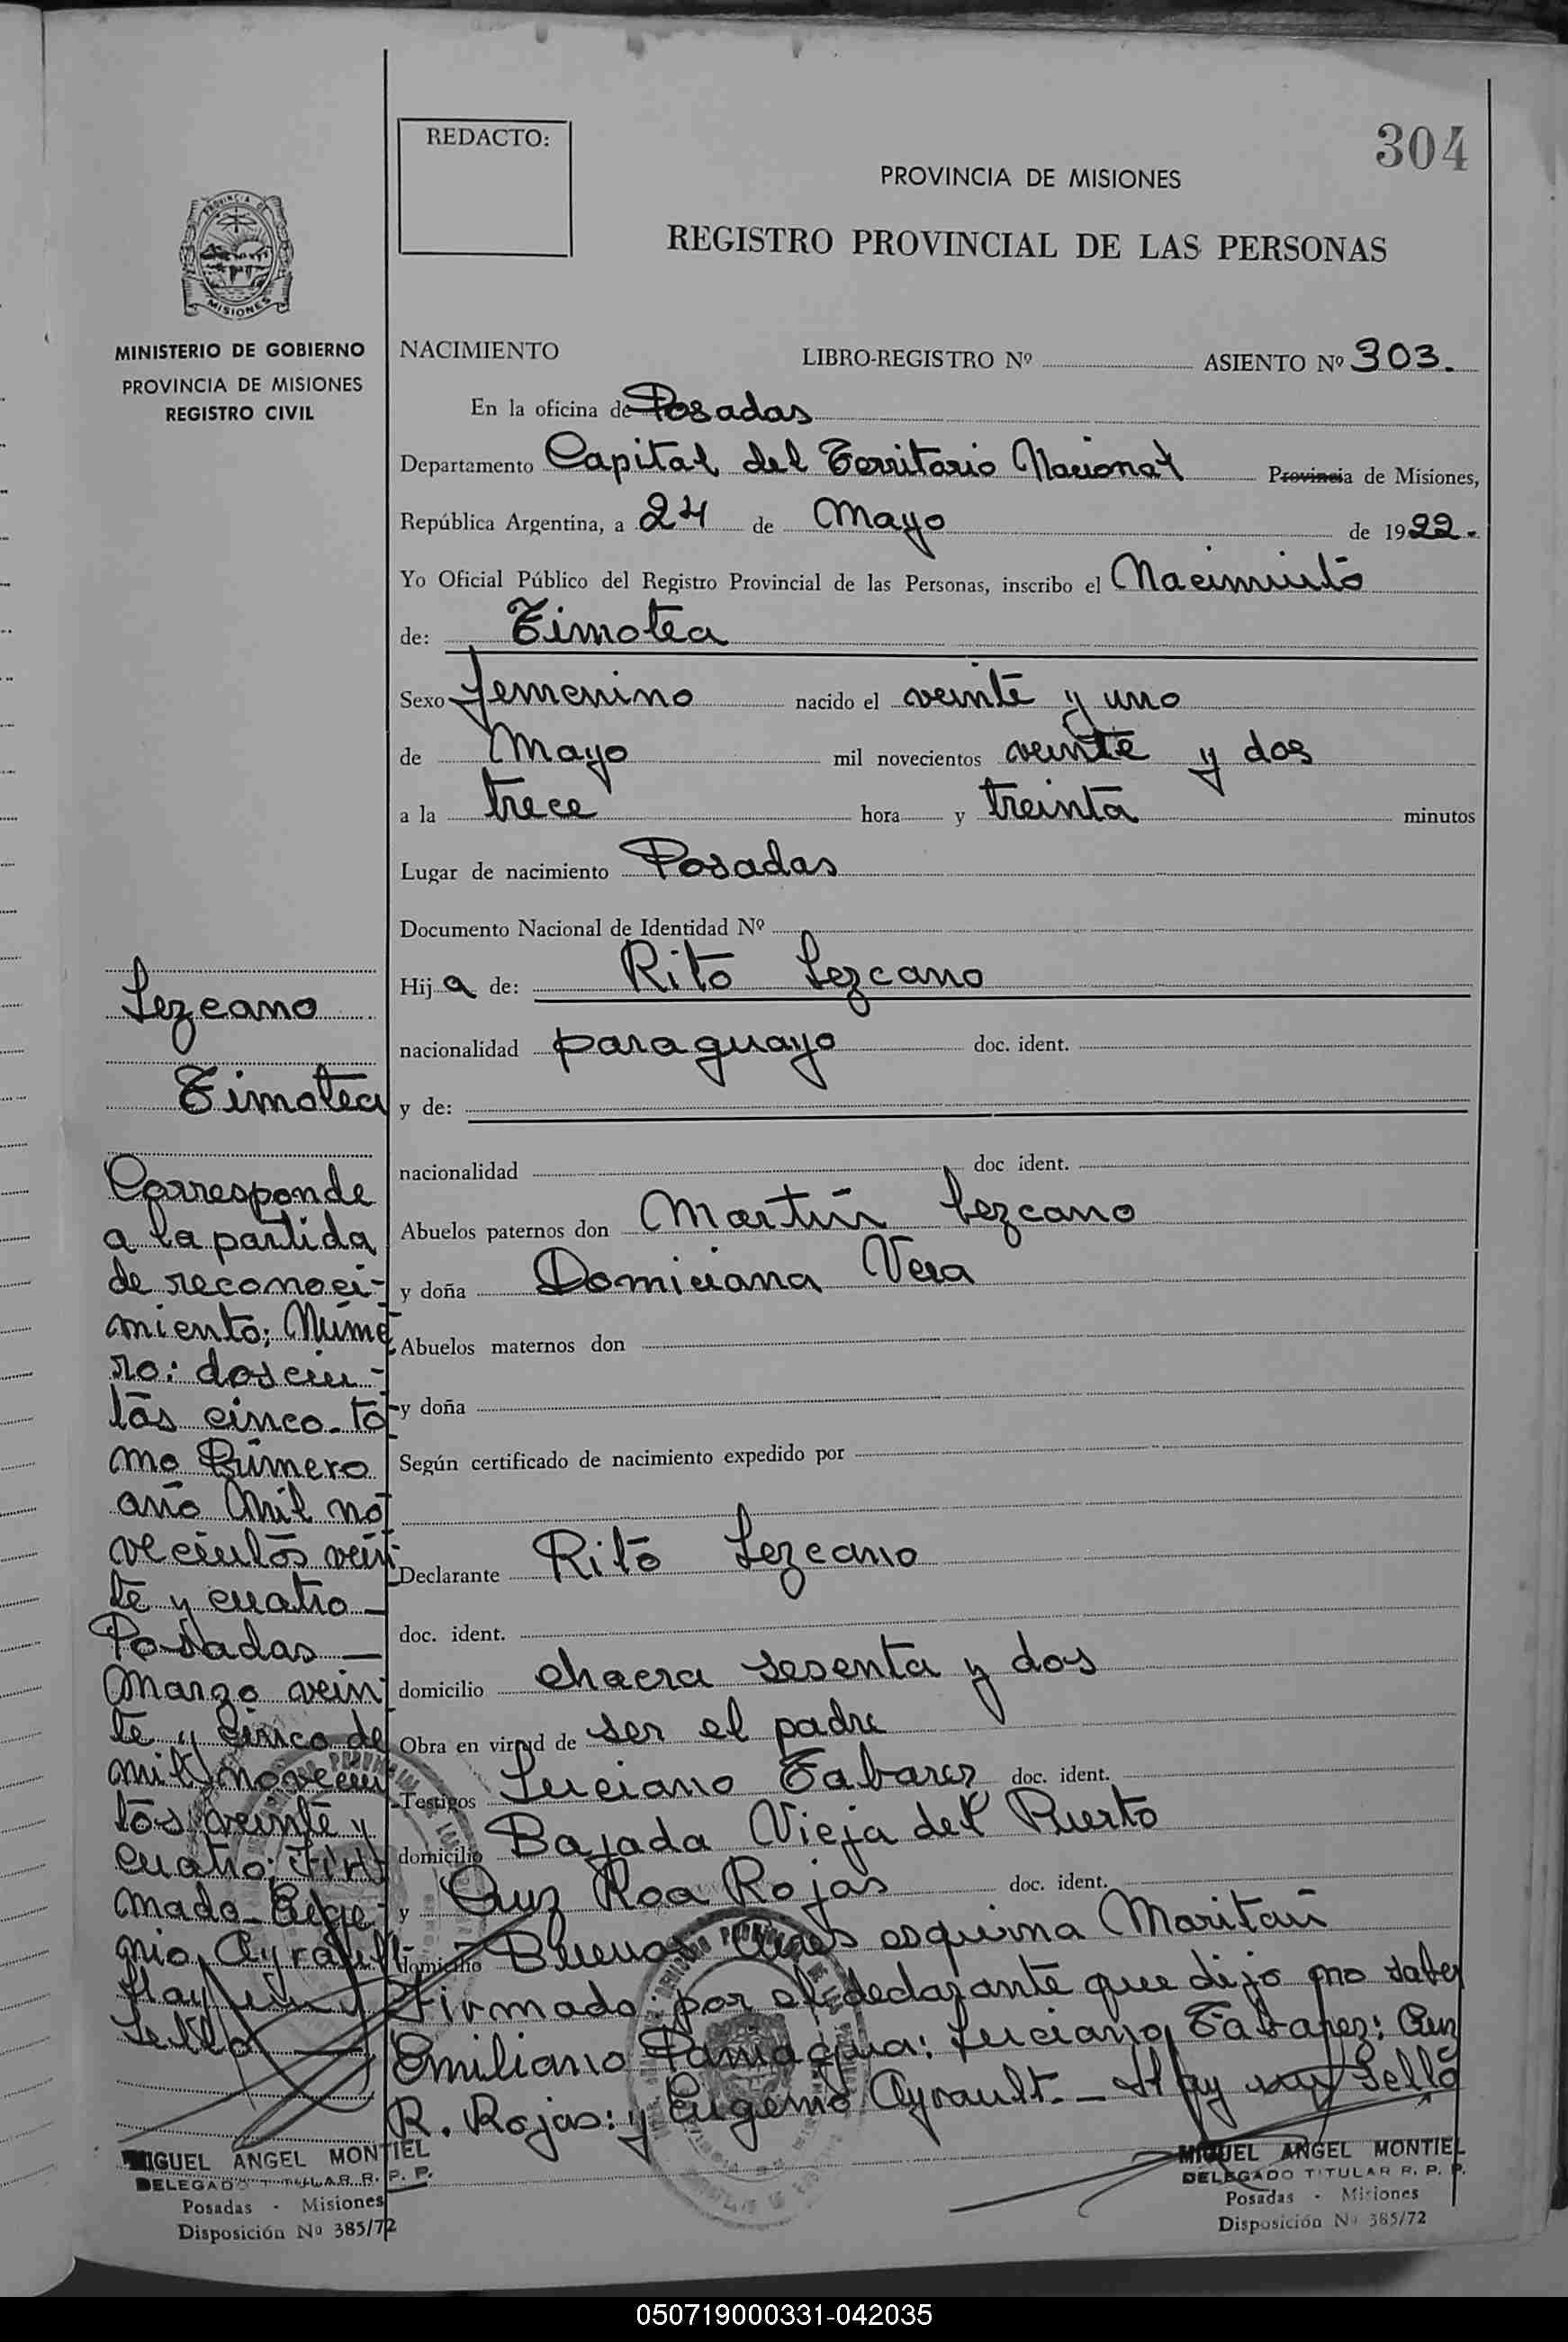 304
REDACTO:
PROVINCIA DE MISIONES
REGISTRO PROVINCIAL DE LAS PERSONAS
MISIONES
MINISTERIO DE GOBIERNO
PROVINCIA DE MISIONES
REGISTRO CIVIL
NACIMIENTO LIBRO-REGISTRO Nº ASIENTO Nº 303.
En la oficina de Posadas
Departamento Capital del Territorio Nacional Provincia de Misiones,
República Argentina, a 24 de Mayo de 1922.
Yo Oficial Público del Registro Provincial de las Personas, inscribo el Nacimiento
de: Timotea
Sexo femenino nacido el veinte y uno
de Mayo mil novecientos veinte y dos
a la trece hora y treinta minutos
Lugar de nacimiento Posadas
Documento Nacional de Identidad Nº
Hij a de: Rito Lezcano
nacionalidad paraguayo doc. ident.
y de:
nacionalidad doc ident.
Abuelos paternos don Martin Lezcano
y doña Domiciana Vera
Abuelos maternos don
y doña
Según certificado de nacimiento expedido por
Declarante Rito Lezcano
doc. ident.
domicilio chacra sesenta y dos
Obra en virtud de ser el padre
Testigos Luciano Tabarez doc. ident.
domicilio Bajada Vieja del Puerto
y Cruz Roa Rojas doc. ident.
domicilio Buenos Aires esquina Maritain
Firmado: por el declarante que dijo no saber
Emiliano Paniagua: Luciano Tabarez: Cruz
R. Rojas: y Eugenio Ayrault. - Hay un Sello
Lezcano
Timotea
Corresponde
a la partida
de reconoci-
miento; Núme
ro: doscien-
tas cinco to
mo Primero
año Mil no
vecientos vein
te y cuatro -
Posadas -
Marzo vein
te y Cinco de
mil novecien
tos veinte y
cuatro; Fir
mado Euge
nio Ayrault
Hay un
Sello
MIGUEL ANGEL MONTIEL
DELEGADO TITULAR R. P. P.
Posadas - Misiones
Disposición Nº 385/72
MIGUEL ANGEL MONTIEL
DELEGADO TITULAR R. P. P.
Posadas - Misiones
Disposición Nº 385/72
050719000331-042035